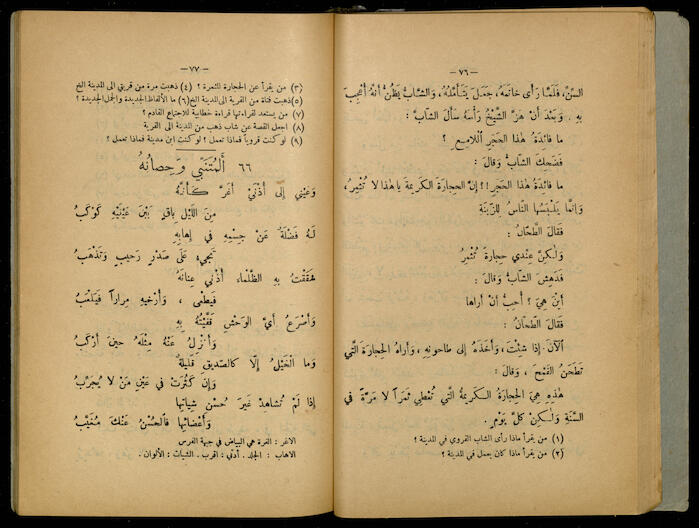 — ٧٦ —
السِّنِّ، فَلَمَّا رَأَى خَاتَمَهُ، جَعَلَ يَتَأَمَّلُهُ، وَالشَّابُّ يَظُنُّ أَنَّهُ أُعْجِبَ
بِهِ . وَبَعْدَ أَنْ هَزَّ الشَّيْخُ رَأْسَهُ سَأَلَ الشَّابَّ :
مَا فَائِدَةُ هٰذَا الحَجَرِ اللَّامِعِ ؟
فَضَحِكَ الشَّابُّ وَقَالَ :
مَا فَائِدَةُ هٰذَا الحَجَرِ !! إِنَّ الحِجَارَةَ الكَرِيمَةَ يَا هٰذَا لَا تُثْمِرُ،
وَإِنَّمَا يَلْبَسُهَا النَّاسُ لِلزِّينَةِ
فَقَالَ الطَّحَّانُ :
وَلٰكِنَّ عِنْدِي حِجَارَةً تُثْمِرُ
فَدَهِشَ الشَّابُّ وَقَالَ :
أَيْنَ هِيَ ؟ أُحِبُّ أَنْ أَرَاهَا
فَقَالَ الطَّحَّانُ :
الآنَ . إِذَا شِئْتَ، وَأَخَذَهُ إِلَى طَاحُونِهِ، وَأَرَاهُ الحِجَارَةَ الَّتِي
تَطْحَنُ القَمْحَ ، وَقَالَ :
هٰذِهِ هِيَ الحِجَارَةُ الكَرِيمَةُ الَّتِي تُعْطِي ثَمَراً لَا مَرَّةً فِي
السَّنَةِ وَلٰكِنْ كُلَّ يَوْمٍ .
(١) من يقرأ ماذا رأى الشاب القروي في المدينة ؟
(٢) من يقرأ ماذا كان يعمل في المدينة ؟
— ٧٧ —
(٣) من يقرأ عن الحجارة المثمرة ؟ (٤) ذهبت مرة من قريتي الى المدينة الخ
(٥) ذهبت فتاة من القرية الى المدينة الخ (٦) ما الألفاظ الجديدة والجمل الجديدة ؟
(٧) من يستعد لقراءتها قراءة خطابية للاجتماع القادم ؟
(٨) اجعل القصة عن شاب ذهب من المدينة الى القرية
(٩) لو كنت قروياً فماذا تعمل ؟ لو كنت ابن مدينة فماذا تعمل ؟
٦٦ أَلْمُتَنَبِّي وَحِصَانُهُ
وَعَيْنِي إِلَى أُذْنَيْ أَغَرَّ كَأَنَّهُ
مِنَ اللَّيْلِ بَاقٍ بَيْنَ عَيْنَيْهِ كَوْكَبُ
لَهُ فَضْلَةٌ عَنْ جِسْمِهِ فِي إِهَابِهِ
تَجِيءُ عَلَى صَدْرٍ رَحِيبٍ وَتَذْهَبُ
شَقَقْتُ بِهِ الظَّلْمَاءَ أُدْنِي عِنَانَهُ
فَيَطْغَى ، وَأُرْخِيهِ مِرَاراً فَيَلْعَبُ
وَأَصْرَعُ أَيَّ الوَحْشِ قَفَّيْتُهُ بِهِ
وَأَنْزِلُ عَنْهُ مِثْلَهُ حِينَ أَرْكَبُ
وَمَا الخَيْلُ إِلَّا كَالصَّدِيقِ قَلِيلَةٌ
وَإِنْ كَثُرَتْ فِي عَيْنِ مَنْ لَا يُجَرِّبُ
إِذَا لَمْ تُشَاهِدْ غَيْرَ حُسْنِ شِيَاتِهَا
وَأَعْضَائِهَا فَالحُسْنُ عَنْكَ مُغَيَّبُ
الاغر : الغرة هي البياض في جبهة الفرس
الاهاب : الجلد . أدني : اقرب . الشيات : الألوان .